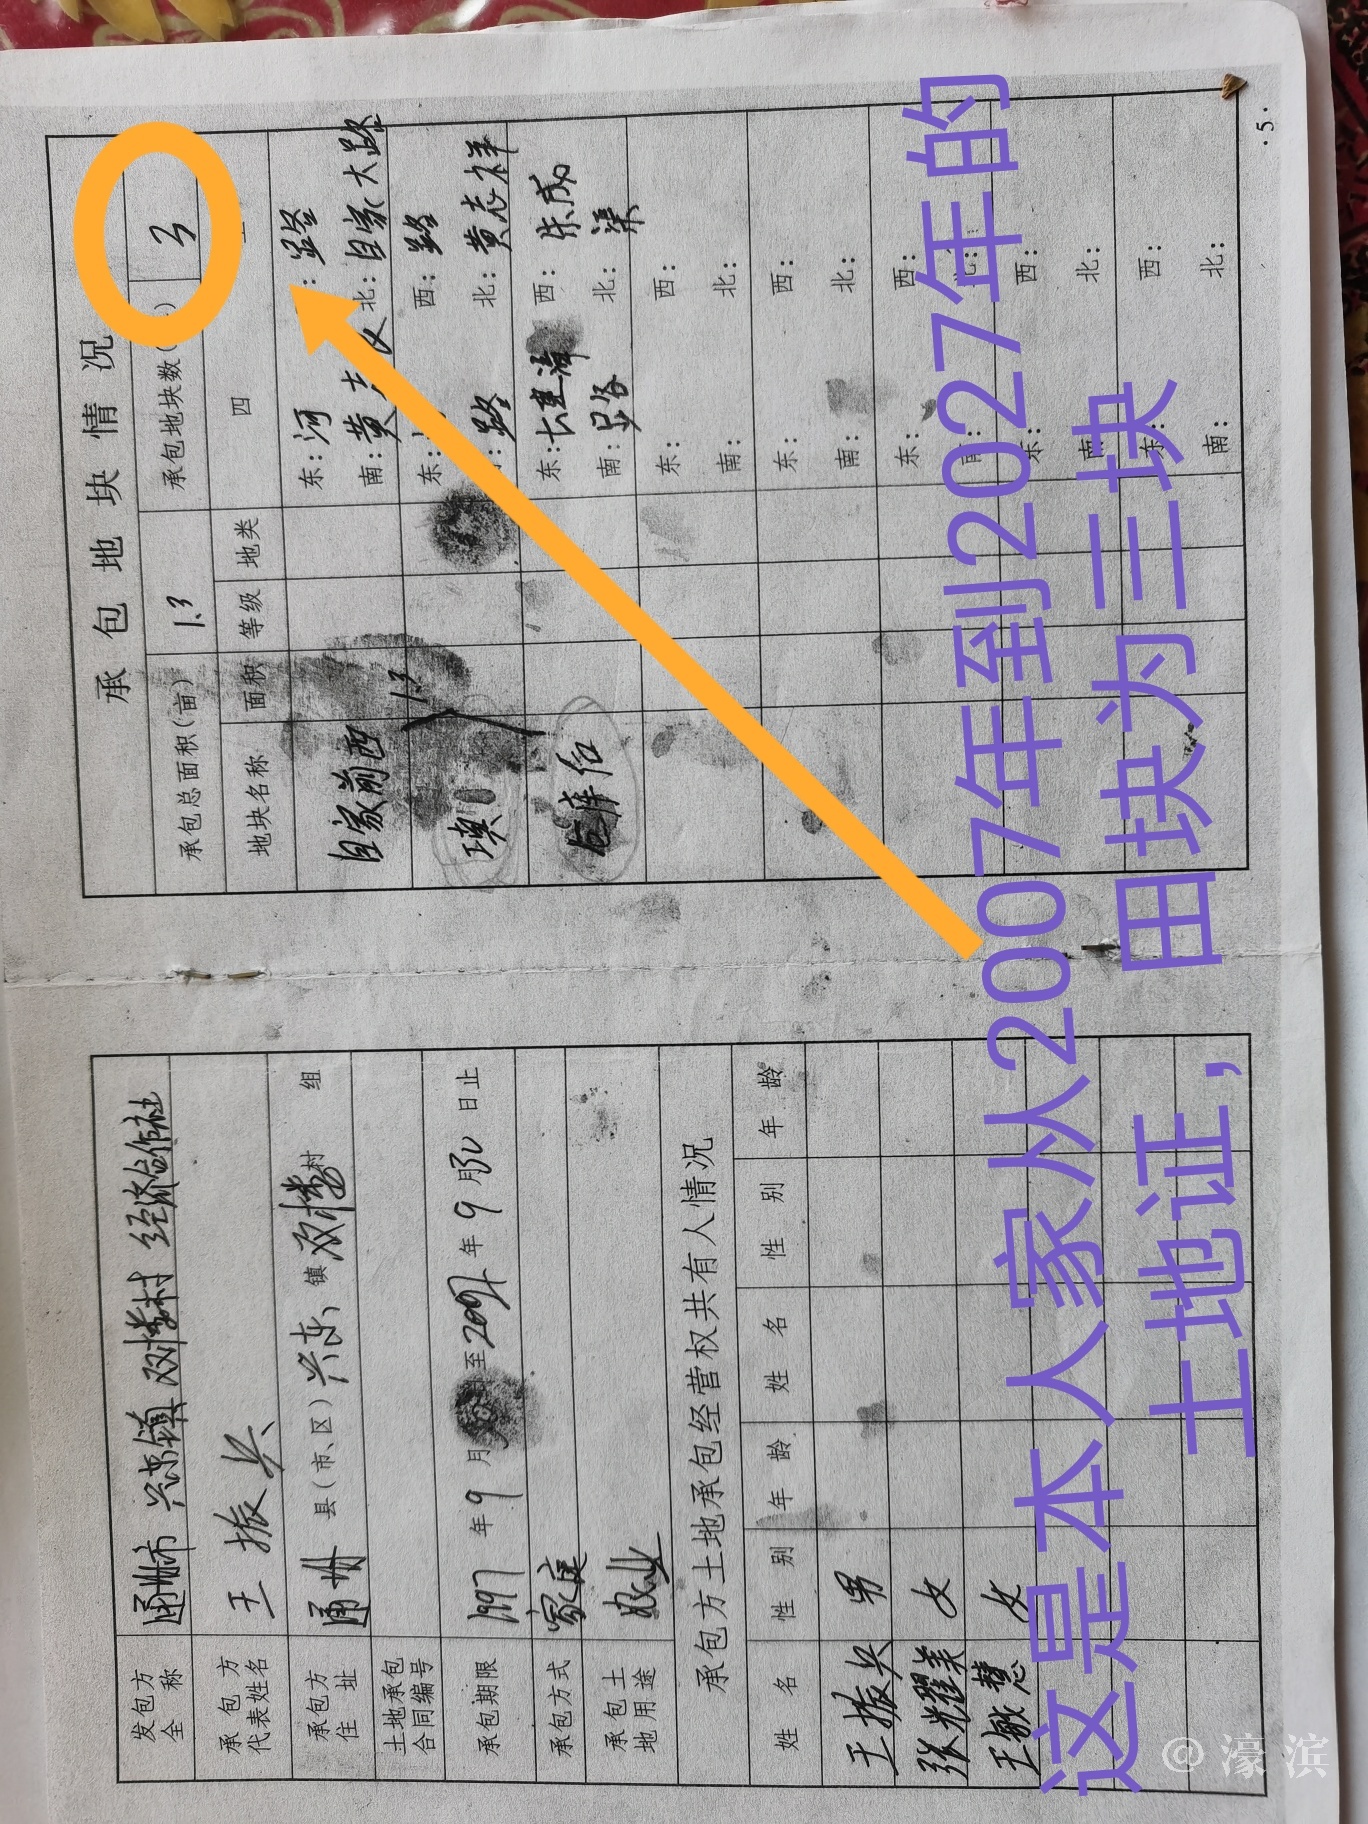 发包方全称 通州市 兴东镇 双楼村 经济合作社
承包方代表姓名 王振兵
承包方住址 通州 县(市、区) 兴东 镇 双楼 村 组
土地承包合同编号
承包期限 1997 年 9 月 至 年 9 月 30 日止
承包方式 家庭
承包土地用途 农业
承包方土地承包经营权共有人情况
姓名 性别 年龄 姓名 性别 年龄
王振兵 男
张耀美 女
王敏慧 女
承包地块情况
承包总面积(亩) 1.3 承包地块数( ) 3
地块名称 面积 等级 地类 四
自家前西 1.3 东:河 :路
南:黄 北:自家大路
填 东: 西:路
:路 北:黄志祥
仓库后 东: 西:朱成
南: 北:渠
东: 西:
南: 北:
东: 西:
南: 北:
东: 西:
南: 北:
东: 西:
南: 北:
东: 西:
南: 北:
·5·
这是本人家从2007年到2027年的
土地证, 田块为三块
@濠滨